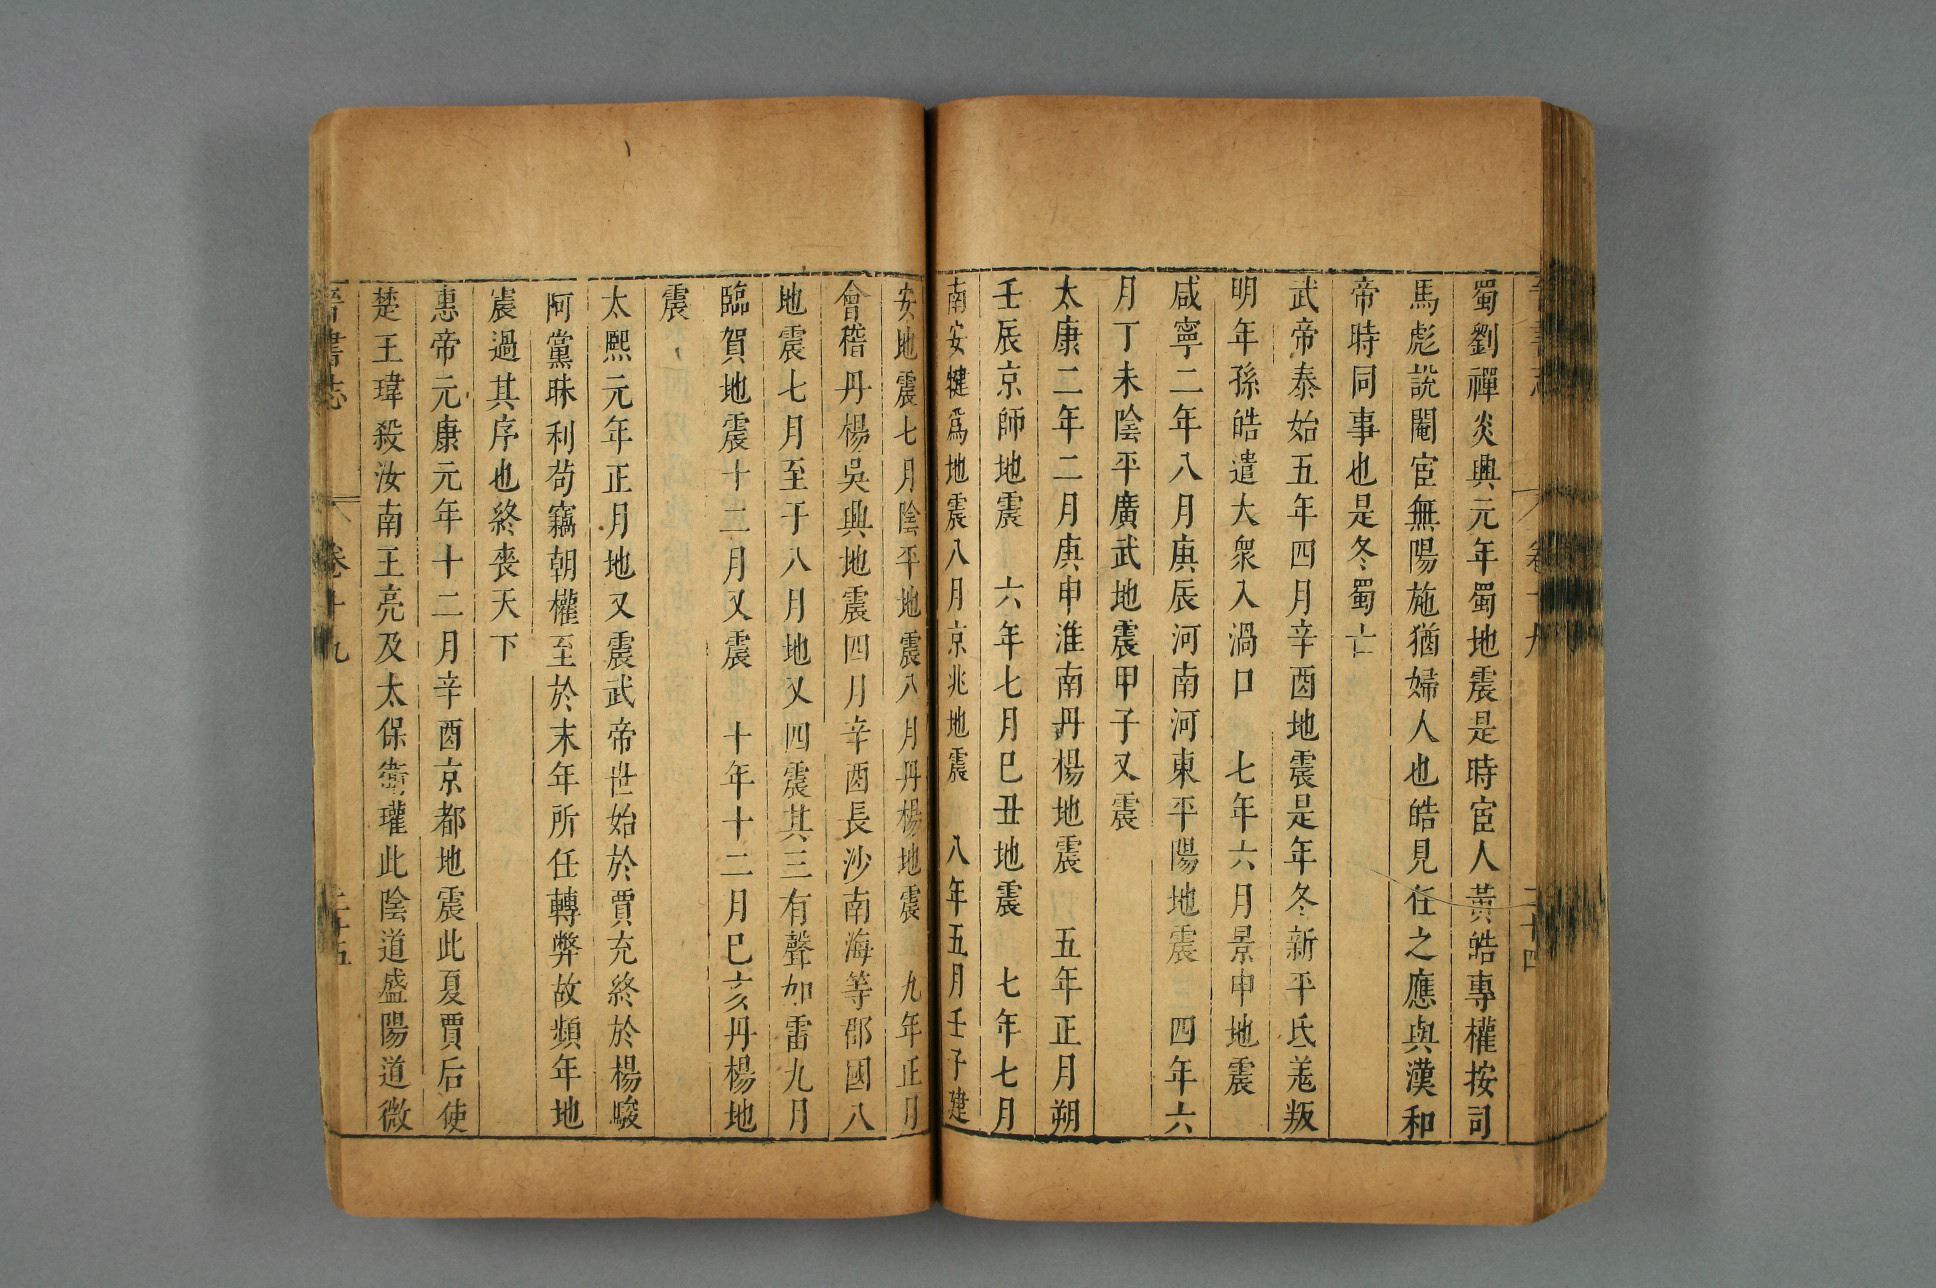 晉書志 卷十九 二十四
蜀劉禪炎興元年蜀地震是時宦人黃皓專權按司
馬彪說閹宦無陽施猶婦人也皓見任之應與漢和
帝時同事也是冬蜀亡
武帝泰始五年四月辛酉地震是年冬新平氐羌叛
明年孫皓遣大眾入渦口 七年六月景申地震
咸寧二年八月庚辰河南河東平陽地震 四年六
月丁未陰平廣武地震甲子又震
太康二年二月庚申淮南丹楊地震 五年正月朔
壬辰京師地震 六年七月巳丑地震 七年七月
南安犍爲地震八月京兆地震 八年五月壬子建
安地震七月陰平地震八月丹楊地震 九年正月
會稽丹楊吳興地震四月辛酉長沙南海等郡國八
地震七月至于八月地又四震其三有聲如雷九月
臨賀地震十二月又震 十年十二月巳亥丹楊地
震
太熙元年正月地又震武帝世始於賈充終於楊駿
阿黨昧利苟竊朝權至於末年所任轉弊故頻年地
震過其序也終喪天下
惠帝元康元年十二月辛酉京都地震此夏賈后使
楚王瑋殺汝南王亮及太保衛瓘此陰道盛陽道微
晉書志 卷十九 二十五